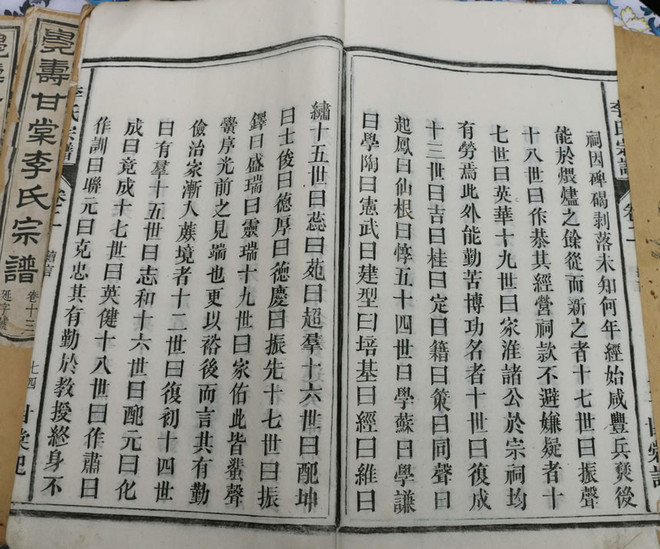 李氏宗譜
卷二
祠因碑碣剥落未知何年經始咸豐兵燹後
能於煨燼之餘從而新之者十七世曰振聲
十八世曰作恭其經營祠款不避嫌疑者十
七世曰英華十九世曰家淮諸公於宗祠均
有勞焉此外能勤苦博功名者十世曰復成
十三世曰吉曰桂曰定曰籍曰策曰同聲曰
起鳳曰仙根曰惇五十四世曰學蘇曰學謙
曰學陶曰憲武曰建型曰培基曰經曰維曰
繡十五世曰蕊曰苑曰超羣十六世曰配坤
曰士俊曰德厚曰德慶曰振先十七世曰振
鐸曰盛瑞曰靈瑞十九世曰家佑此皆蜚聲
黌序光前之見端也更以裕後而言其有勤
儉治家漸入蔗境者十二世曰復初十四世
曰有羣十五世曰志和十六世曰配元曰化
成曰竟成十七世曰英健十八世曰作肅曰
作訓曰聯元曰克忠其有勤於教授終身不
李氏宗譜
卷二
七四
壽甘棠李氏宗譜
卷十三